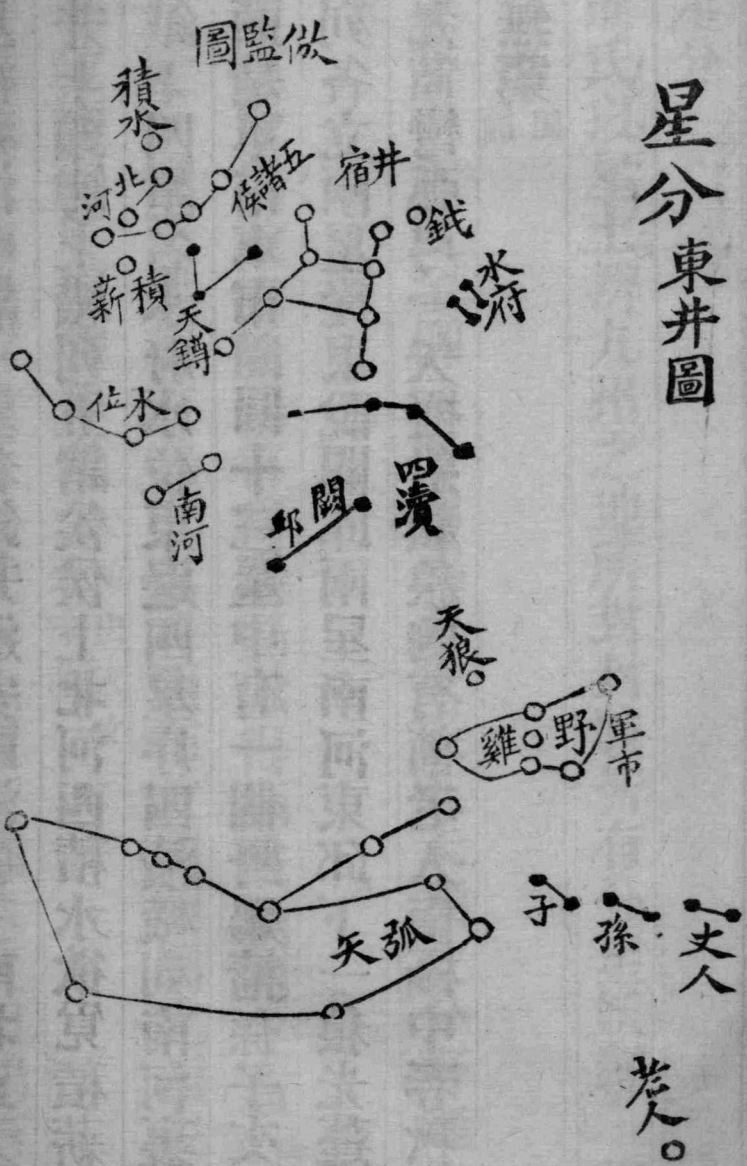 星分東井圖
倣監圖
積水
北河
五諸侯
井宿
鉞
水府
積薪
天鐏
水位
南河
四瀆
闕邱
天狼
軍市
野雞
弧矢
子
孫
丈人
老人